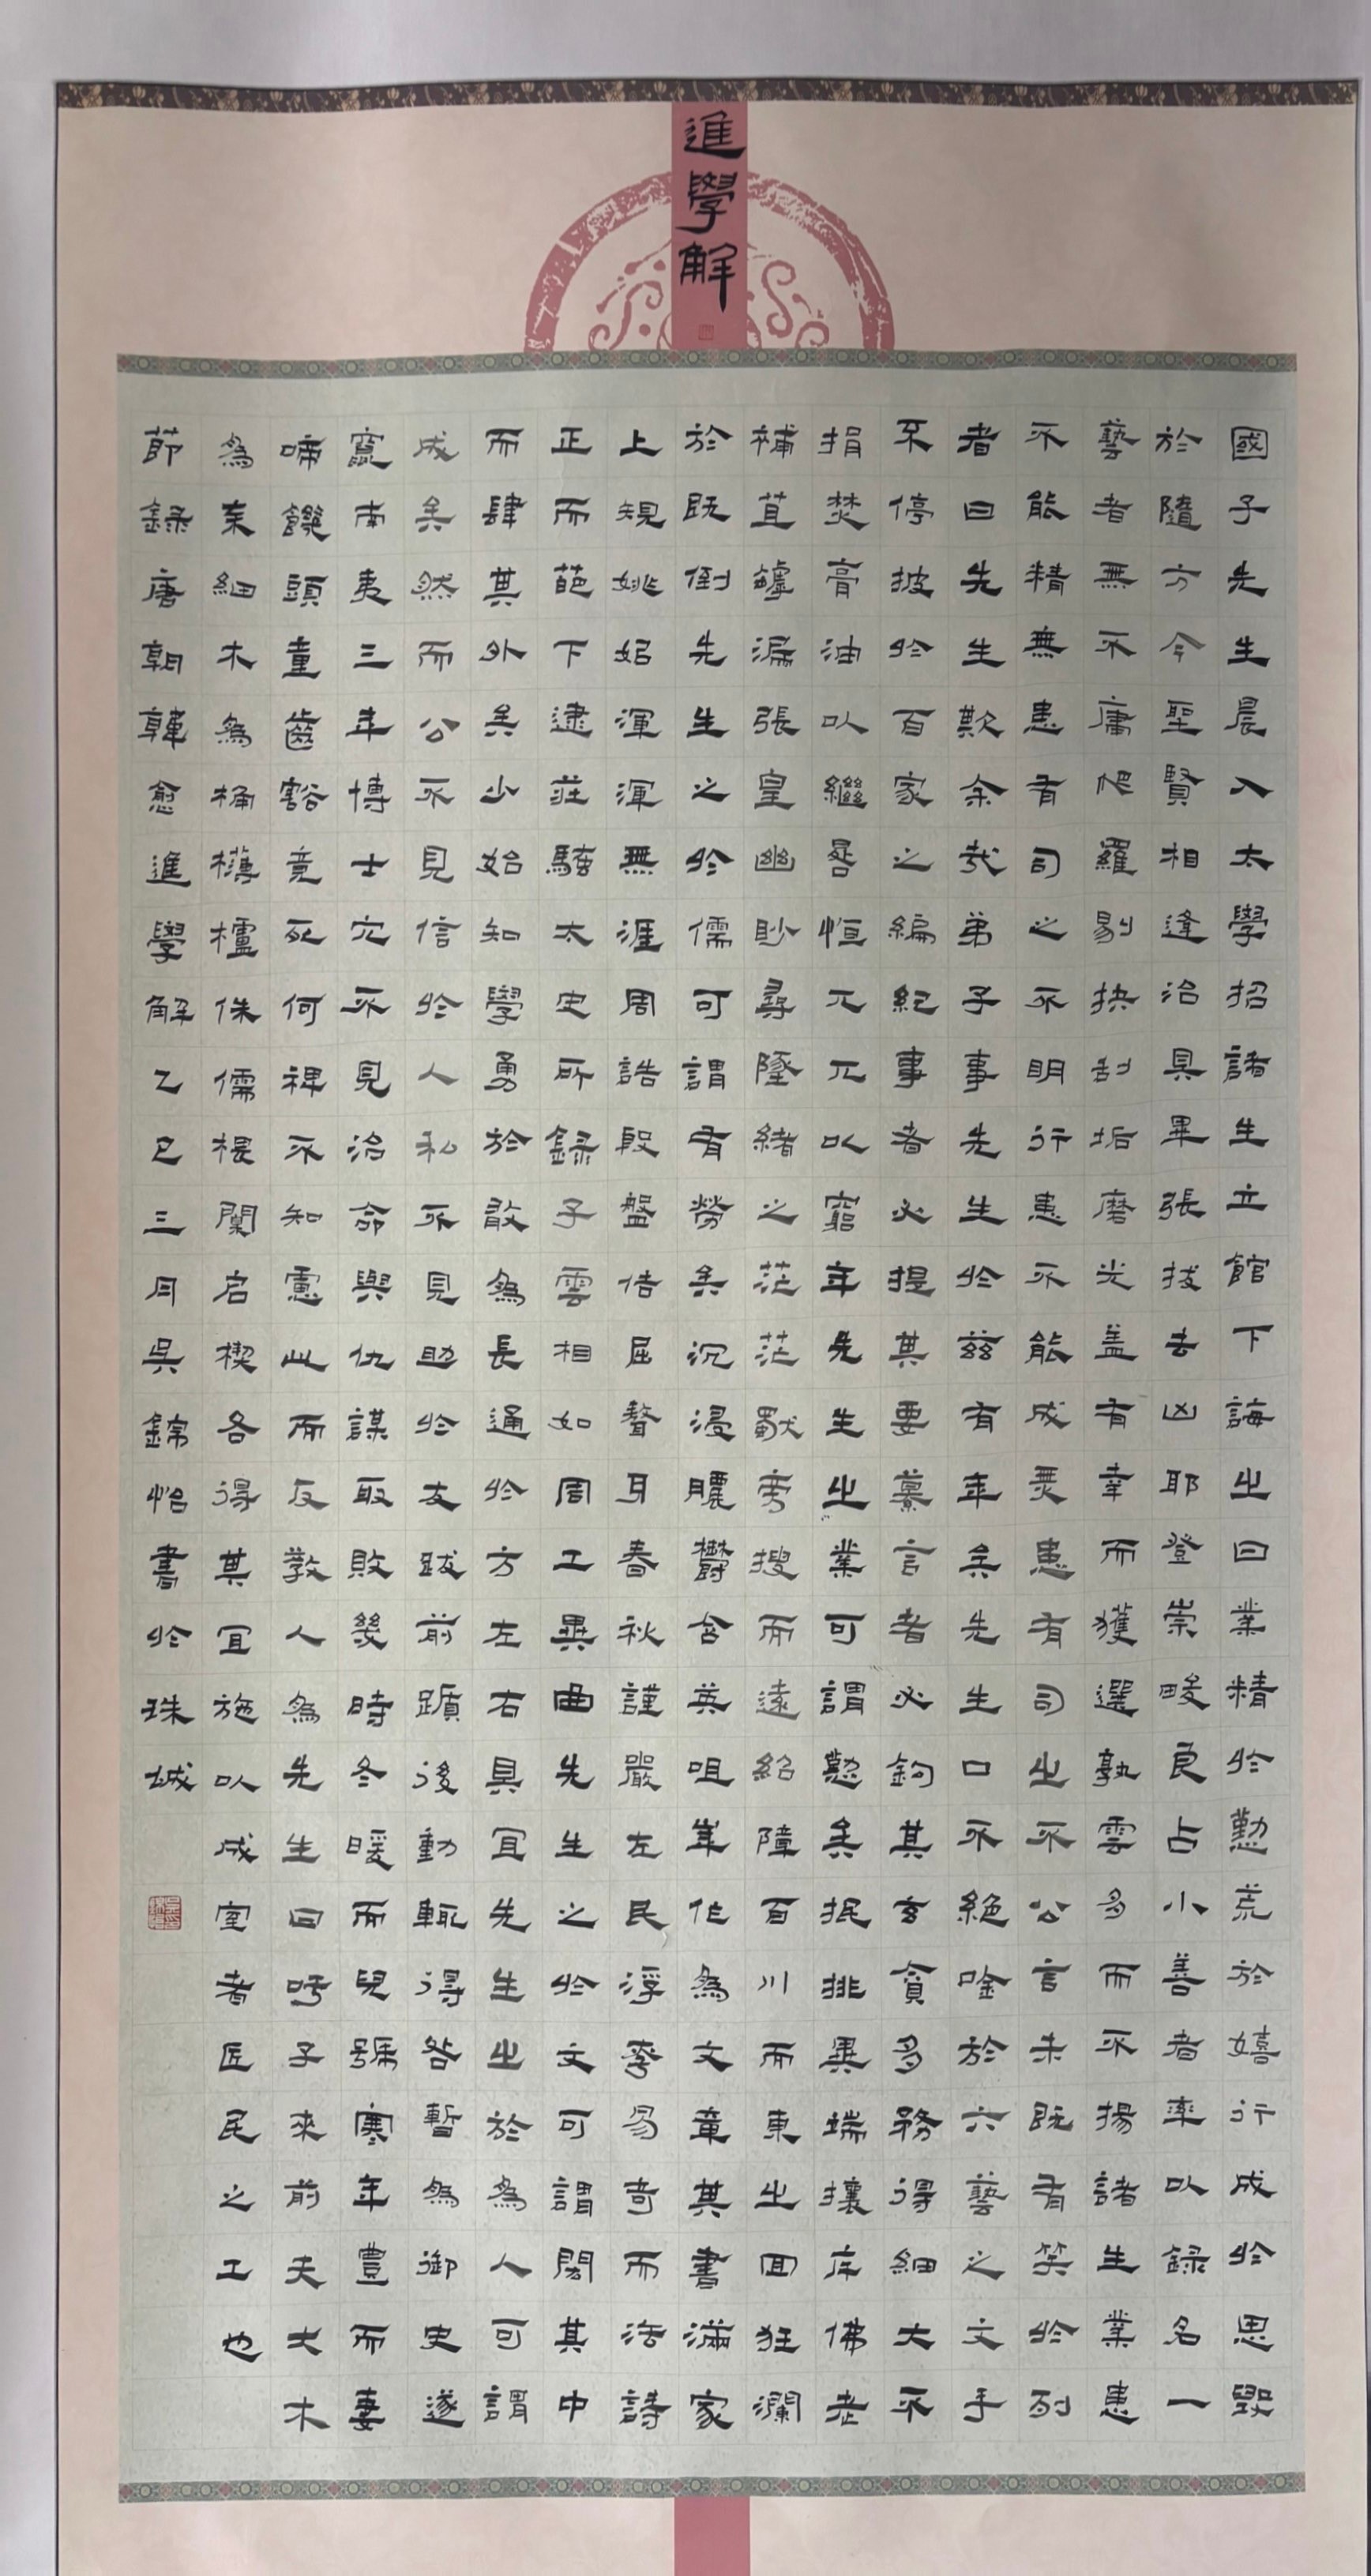 進學解
國子先生晨入太學招諸生立館下誨之曰業精於勤荒於嬉行成於思毀
於隨方今聖賢相逢治具畢張拔去凶耶登崇畯良占小善者率以録名一
藝者無不庸爬羅剔抉刮垢磨光盖有幸而獲選孰雲多而不揚諸生業患
不能精無患有司之不明行患不能成無患有司之不公言未既有笑於列
者曰先生欺余哉弟子事先生於兹有年矣先生口不絶唫於六藝之文手
不停披於百家之編紀事者必提其要纂言者必鉤其玄貪多務得細大不
捐焚膏油以繼晷恒兀兀以窮年先生之業可謂勤矣抵排異端攘斥佛老
補苴罅漏張皇幽眇尋墜緒之茫茫獨旁搜而遠紹障百川而東之回狂瀾
於既倒先生之於儒可謂有勞矣沉浸醲鬱含英咀華作為文章其書滿家
上規姚姒渾渾無涯周誥殷盤佶屈聱牙春秋謹嚴左氏浮誇易奇而法詩
正而葩下逮莊騷太史所録子雲相如同工異曲先生之於文可謂閎其中
而肆其外矣少始知學勇於敢為長通於方左右具宜先生之於為人可謂
成矣然而公不見信於人私不見助於友跋前躓後動輒得咎暫為御史遂
竄南夷三年博士冗不見治命與仇謀取敗幾時冬暖而兒號寒年豐而妻
啼饑頭童齒豁竟死何裨不知慮此而反教人為先生曰吁子來前夫大木
為杗細木為桷欂櫨侏儒椳闑扂楔各得其宜施以成室者匠氏之工也
節録唐朝韓愈進學解乙巳三月吳錦怡書於珠城